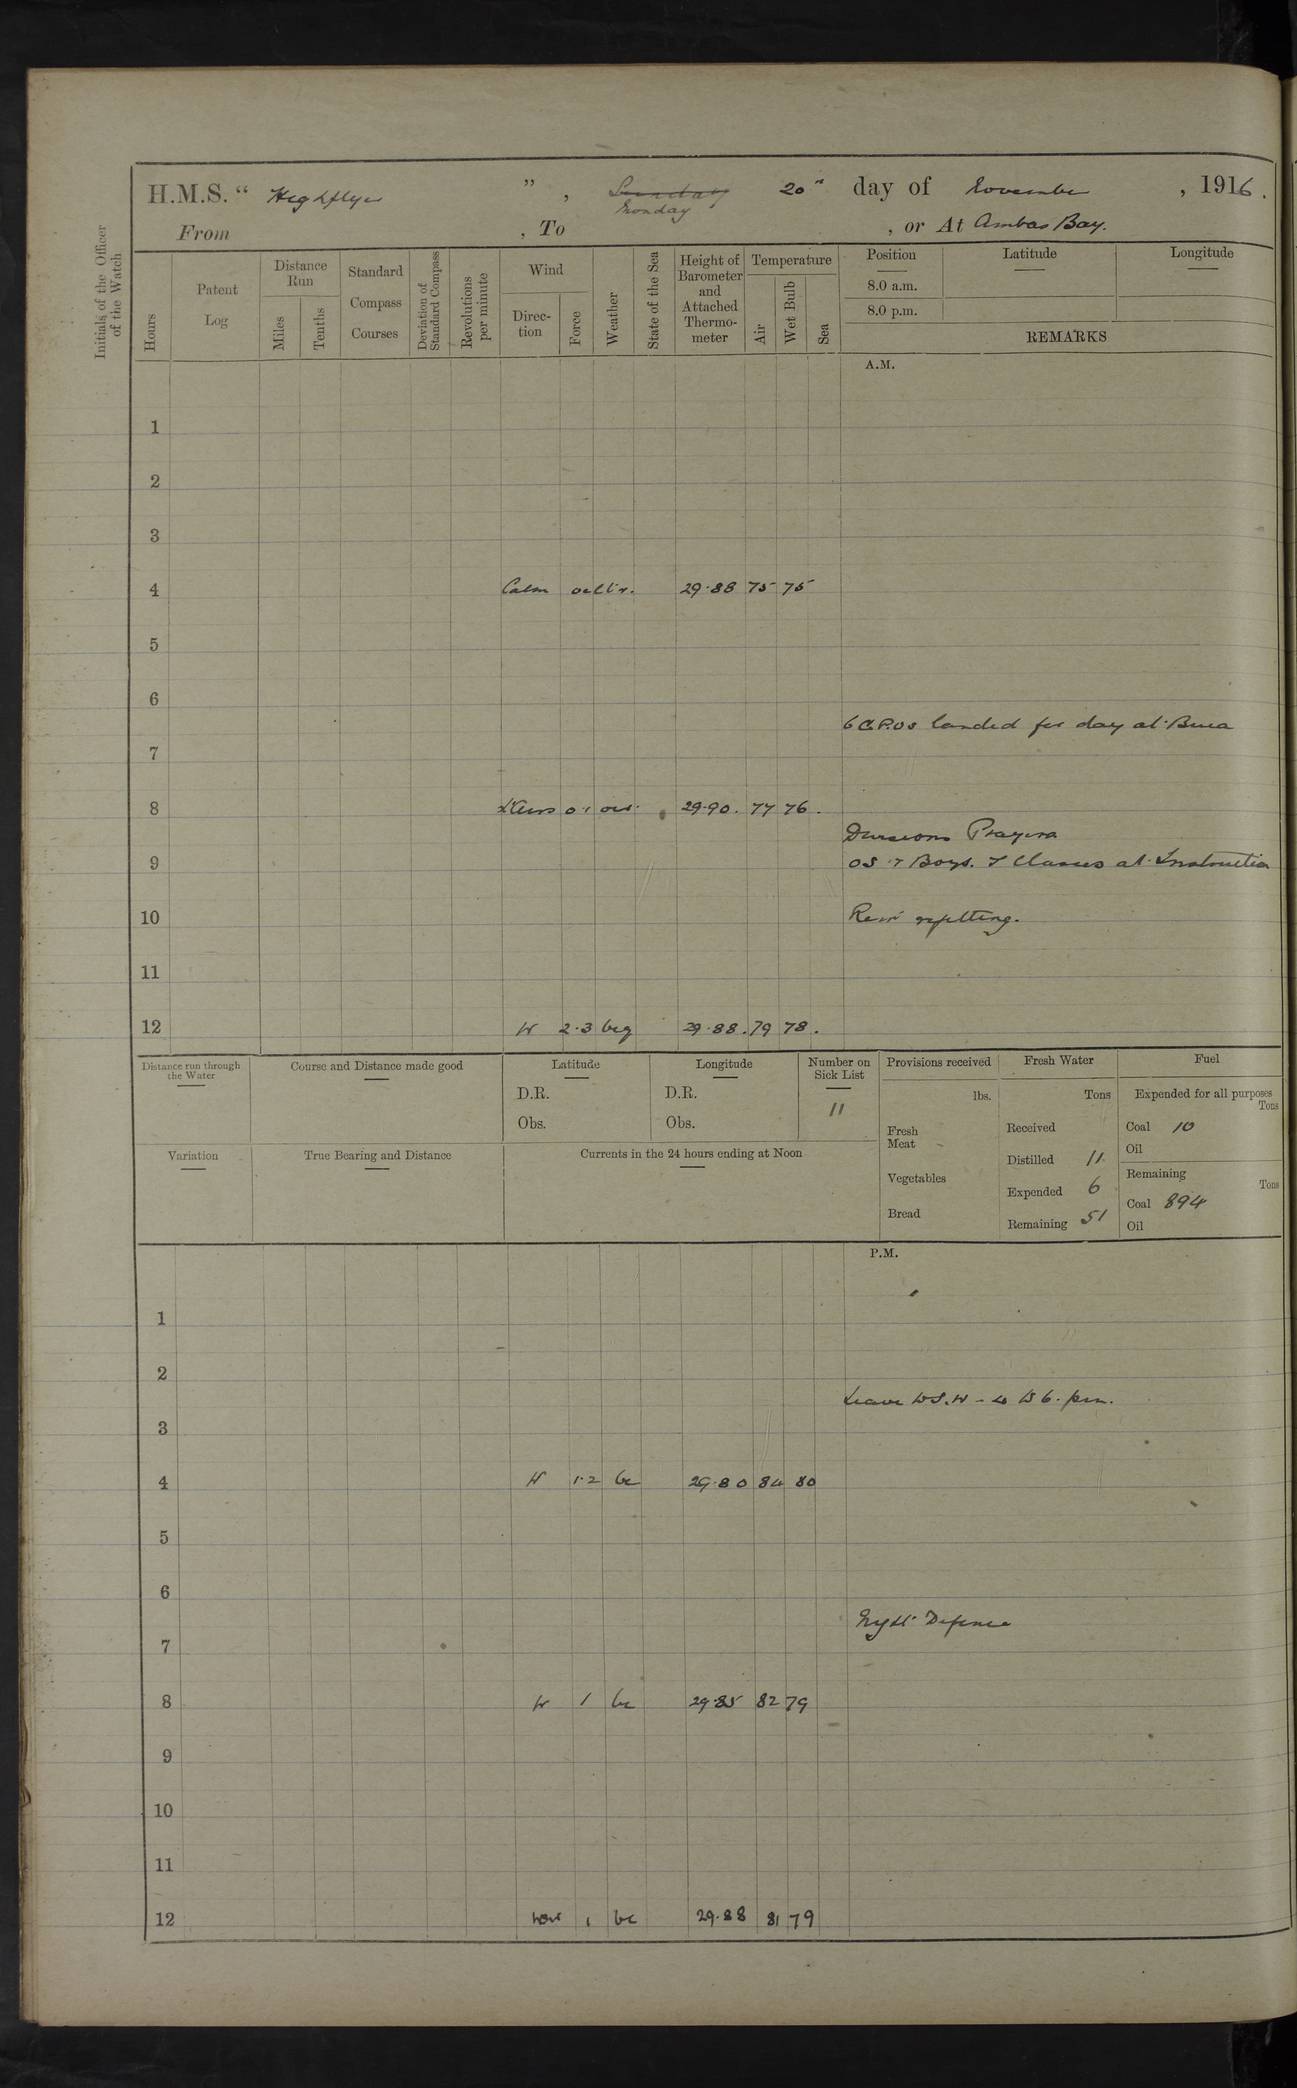 H.M.S. “ Highflyer ” , Sunday 20th day of November , 1916.
Monday
From , To , or At Ambas Bay.
Initials of the Officer of the Watch
Hours
Patent Log
Distance Run
Miles
Tenths
Standard Compass Courses
Deviation of Standard Compass
Revolutions per minute
Wind
Direction
Force
Weather
State of the Sea
Height of Barometer and Attached Thermometer
Temperature
Air
Wet Bulb
Sea
Position
Latitude
Longitude
8.0 a.m.
8.0 p.m.
REMARKS
A.M.
1
2
3
4 Calm 29.88 75 75
5
6
6 C.P.Os landed for day at Buea
7
8 0.1 29.90. 77 76.
Divisions Prayers
9 OS & Boys. & Classes at Instruction
10 Rem refitting.
11
12 W 2.3 bcg 29.88. 79 78.
Distance run through the Water
Course and Distance made good
Latitude
D.R.
Obs.
Longitude
D.R.
Obs.
Number on Sick List
11
Provisions received
lbs.
Fresh Meat
Vegetables
Bread
Fresh Water
Tons
Received
Distilled 11
Expended 6
Remaining 51
Fuel
Expended for all purposes
Tons
Coal 10
Oil
Remaining
Tons
Coal 894
Oil
Variation
True Bearing and Distance
Currents in the 24 hours ending at Noon
P.M.
1
2
Leave to S.W - to 6. pm.
3
4 W 1.2 bc 29.80 84 80
5
6
Night Defence
7
8 W 1 bc 29.85 82 79
9
10
11
12 1 bc 29.88 81 79